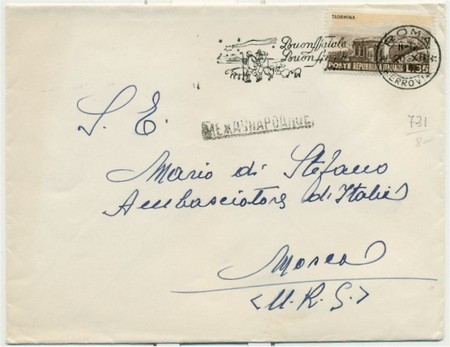 TAORMINA
Buon Natale
Buon Anno
ROMA
FERROVIA
POSTE REPUBBLICA ITALIANA L.35
МЕЖДУНАРОДНОЕ
731
8-
S. E.
Mario di Stefano
Ambasciatore d'Italia
Mosca
<U.R.S.>